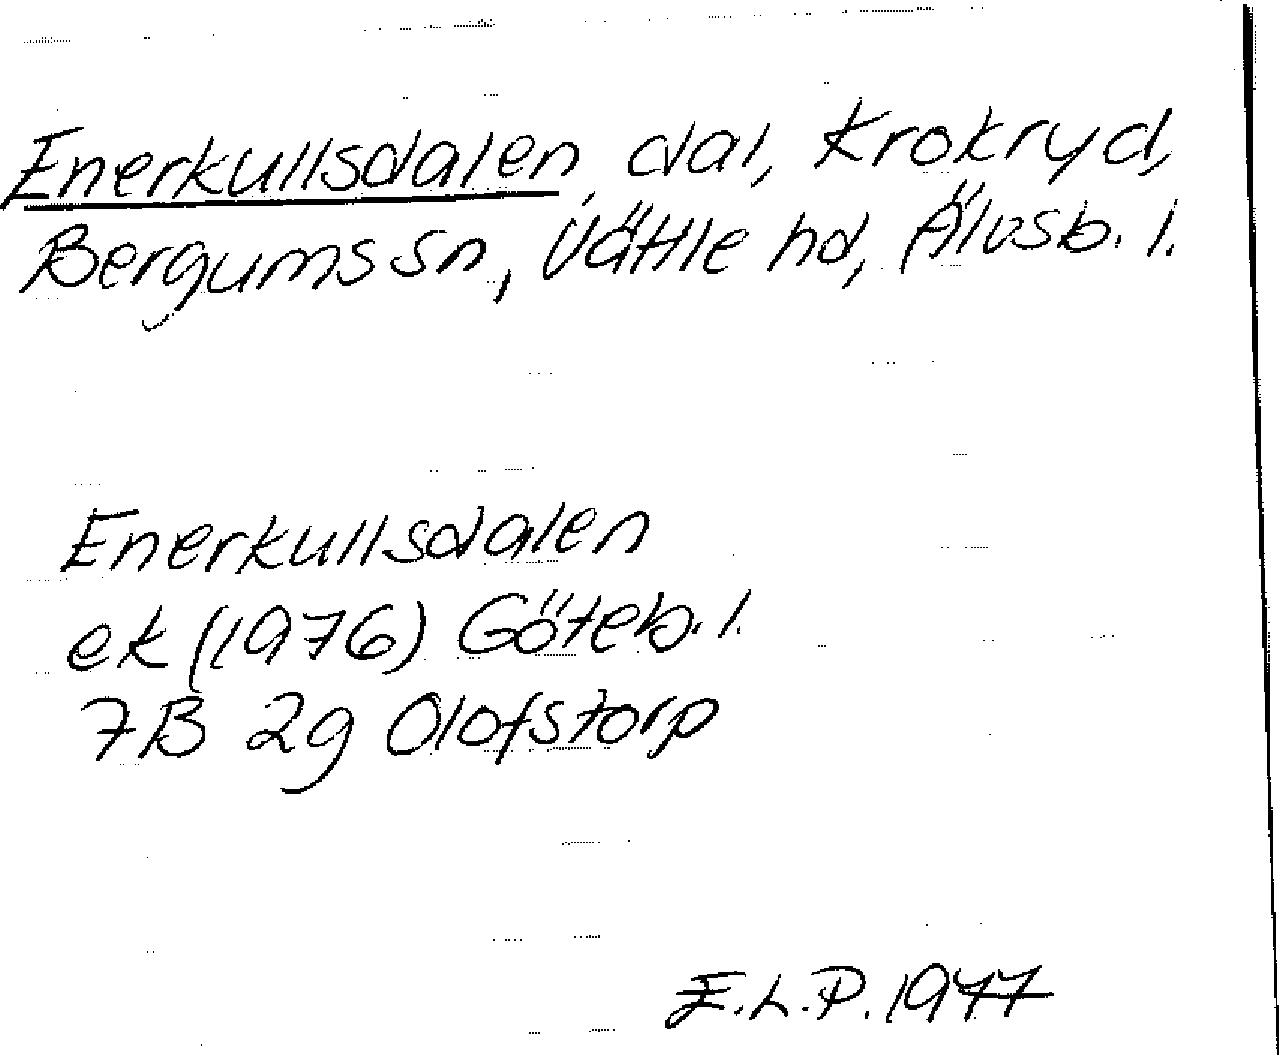 Enerkullsdalen, dal, Krokryd,
Bergums sn, Vättle hd, Älvsb. l.
Enerkullsdalen
ek (1976) Göteb. l.
7B 2g Olofstorp
E.L.P. 1977